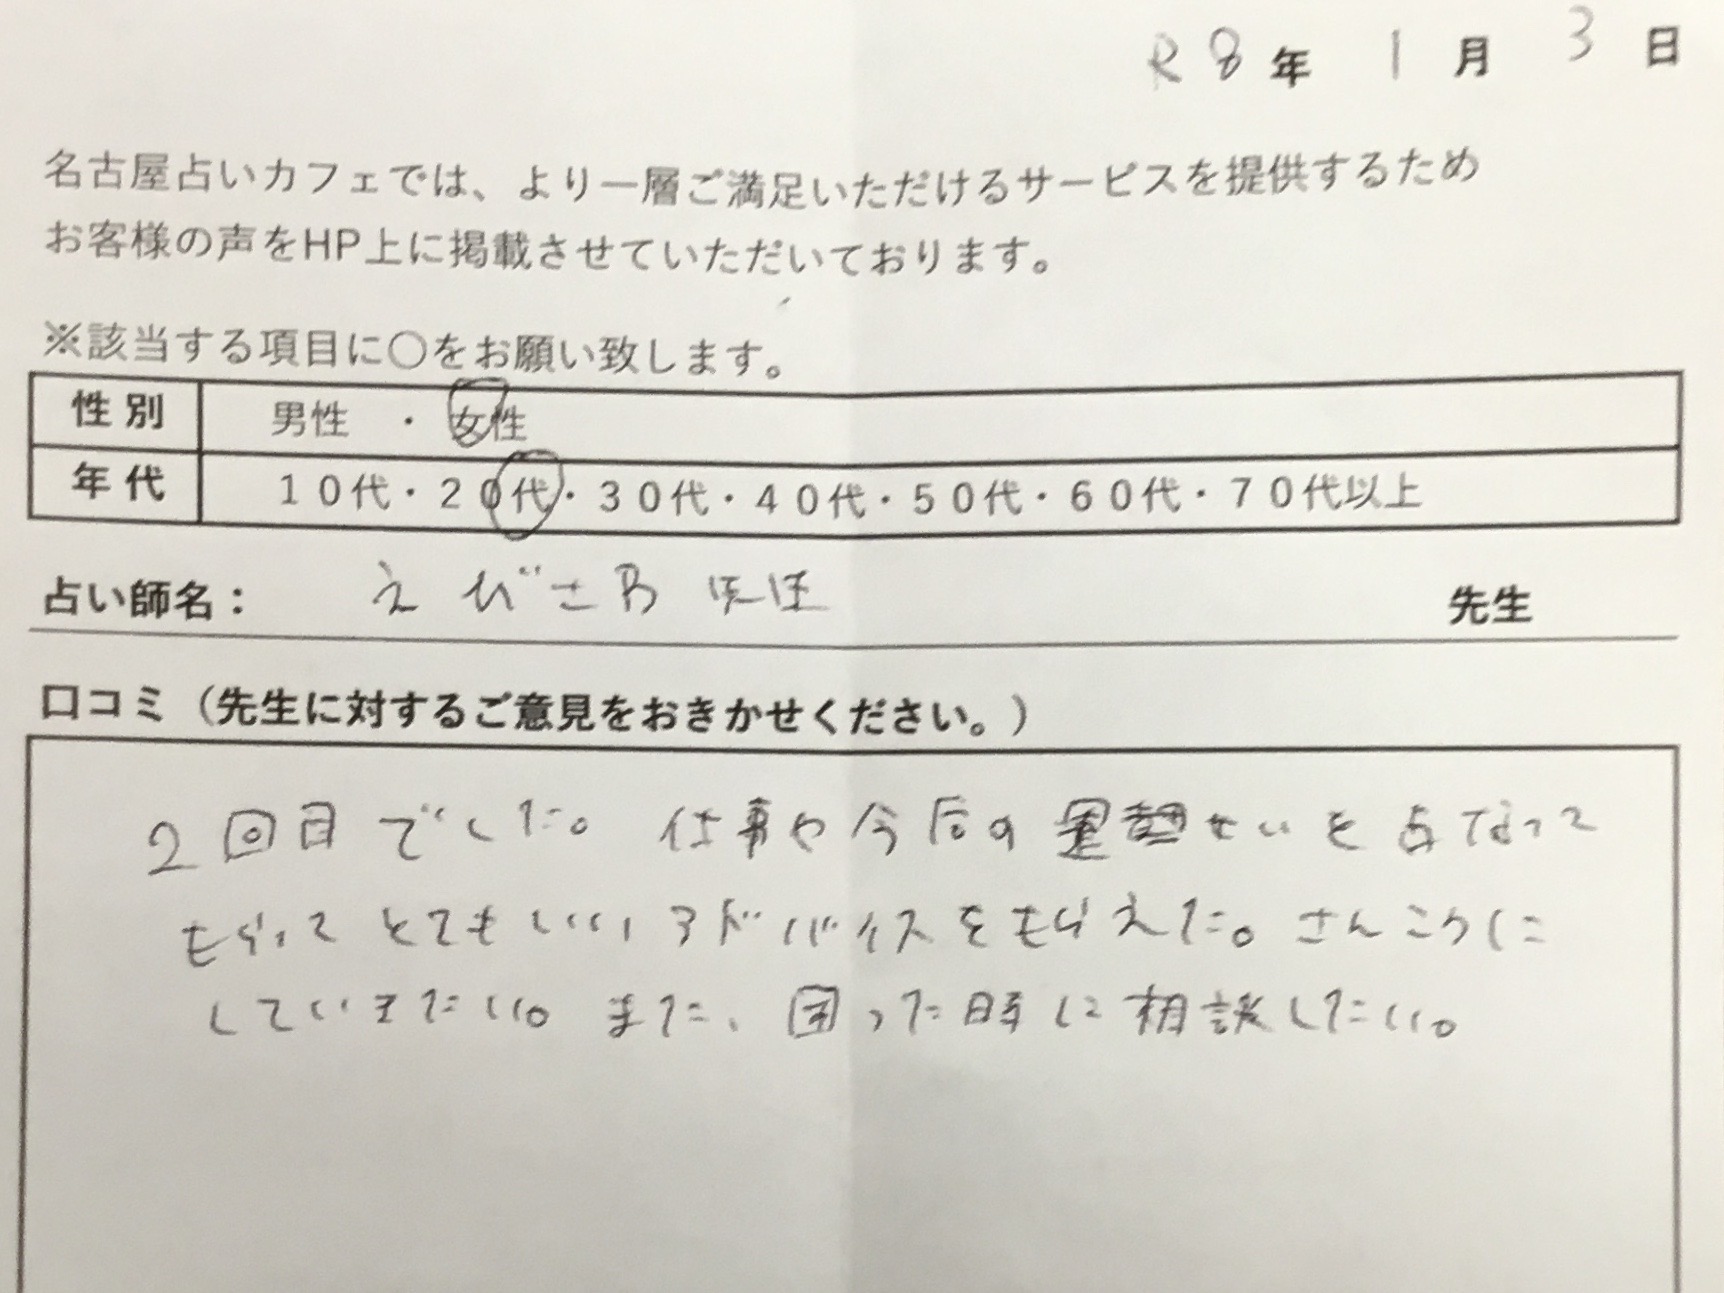 R8年 1月 3日
名古屋占いカフェでは、より一層ご満足いただけるサービスを提供するため
お客様の声をHP上に掲載させていただいております。
※該当する項目に〇をお願い致します。
性別 男性 ・ 女性
年代 10代・20代・30代・40代・50代・60代・70代以上
占い師名: えびさわ 先生 先生
口コミ（先生に対するご意見をおきかせください。）
2回目でした。仕事や今后の運勢せいを占なって
もらってとてもいいアドバイスをもらえた。さんこうに
していきたい。また、困った時に相談したい。